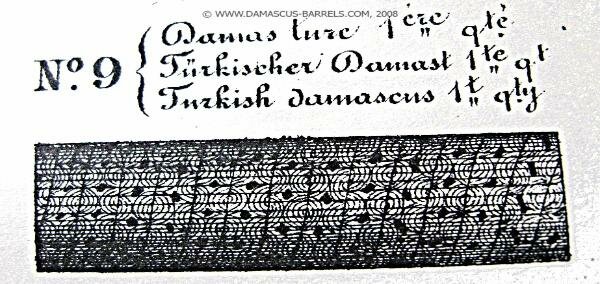 © WWW.DAMASCUS-BARRELS.COM, 2008
Damas turc 1ère qté
No. 9 Türkischer Damast 1te qt
Turkish damascus 1t qty